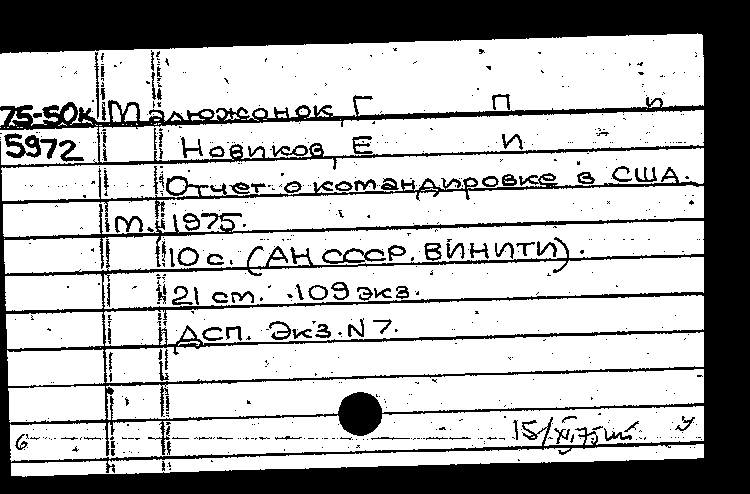 75-50к Малюжонок, Г П и
5972 Новиков, Е И
Отчет о командировке в США.
М. 1975.
10 с. (АН СССР. ВИНИТИ).
21 cm. 109 экз.
ДСП. Экз. N 7.
6 15/XI,75